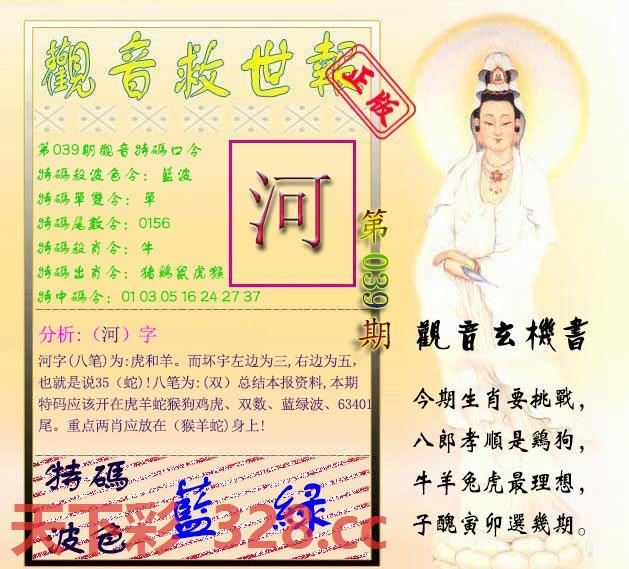 觀音救世報
正版
第039期觀音特碼口令
特碼殺波色令：藍波
特碼單雙令：單
特碼尾數令：0156
特碼殺肖令：牛
特碼出肖令：猪鷄鼠虎猴
特中碼令：01 03 05 16 24 27 37
河
第039期
分析:（河）字
河字(八笔)为:虎和羊。而坏宇左边为三,右边为五，
也就是说35（蛇)!八笔为:(双）总结本报资料,本期
特码应该开在虎羊蛇猴狗鸡虎、双数、蓝绿波、63401
尾。重点两肖应放在（猴羊蛇)身上!
特碼
波色
藍 綠
天下彩4328.cc
觀音玄機書
今期生肖要挑戰，
八郎孝順是鷄狗，
牛羊兔虎最理想，
子醜寅卯選幾期。